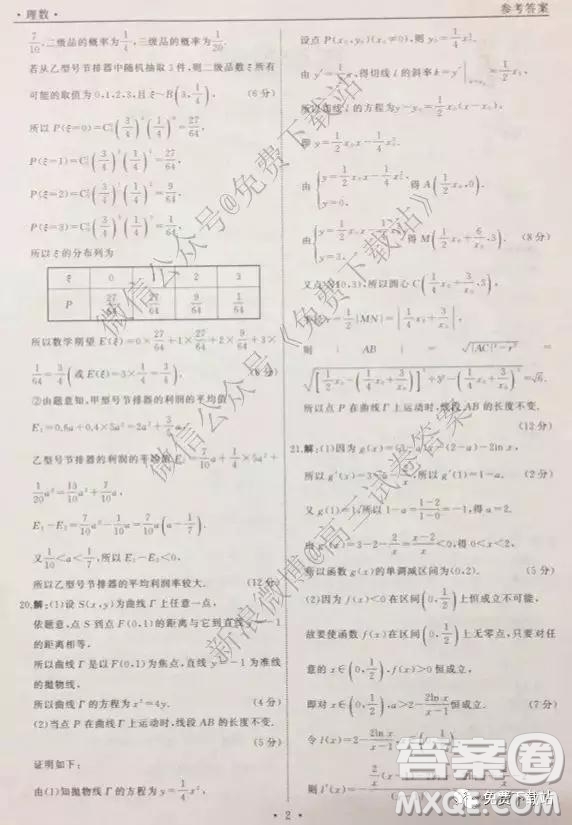 ·理数·
参考答案
7/10,二级品的概率为1/4,三级品的概率为1/20.
若从乙型号节排器中随机抽取3件,则二级品数ξ所有
可能的取值为0,1,2,3,且ξ~B(3,1/4). (6分)
所以P(ξ=0)=C₃⁰(3/4)³(1/4)⁰=27/64,
P(ξ=1)=C₃¹(3/4)²(1/4)¹=27/64,
P(ξ=2)=C₃²(3/4)¹(1/4)²=9/64,
P(ξ=3)=C₃³(3/4)⁰(1/4)³=1/64.
所以ξ的分布列为
ξ 0 1 2 3
P 27/64 27/64 9/64 1/64
所以数学期望E(ξ)=0×27/64+1×27/64+2×9/64+3×
1/64=3/4(或E(ξ)=3×1/4=3/4).
②由题意知,甲型号节排器的利润的平均值
E₁=0.6a+0.4×5a²=2a²+3/5a,
乙型号节排器的利润的平均值E₂=7/10a+1/4×5a²+
1/20a²=13/10a²+7/10a,
E₁-E₂=7/10a²-1/10a=7/10a(a-1/7).
又1/10<a<1/7,所以E₁-E₂<0,
所以乙型号节排器的平均利润率较大. (12分)
20.解:(1)设S(x,y)为曲线Γ上任意一点,
依题意,点S到点F(0,1)的距离与它到直线y=-1
的距离相等,
所以曲线Γ是以F(0,1)为焦点,直线y=-1为准线
的抛物线,
所以曲线Γ的方程为x²=4y. (4分)
(2)当点P在曲线Γ上运动时,线段AB的长度不变.
(5分)
证明如下:
由(1)知抛物线Γ的方程为y=1/4x²,
设点P(x₀,y₀)(x₀≠0),则y₀=1/4x₀²,
由y′=1/2x,得切线l的斜率k=y′|ₓ₌ₓ₀=1/2x₀,
所以切线l的方程为y-y₀=1/2x₀(x-x₀),
即y=1/2x₀x-1/4x₀².
由{y=1/2x₀x-1/4x₀²,
y=0,
得A(1/2x₀,0).
由{y=1/2x₀x-1/4x₀²,
y=3,
得M(1/2x₀+6/x₀,3). (8分)
又点N(0,3),所以圆心C(1/4x₀+3/x₀,3),
半径r=1/2|MN|=|1/4x₀+3/x₀|,
则|AB|=√(|AC|²-r²)=
√([1/2x₀-(1/4x₀+3/x₀)]²+3²-(1/4x₀+3/x₀)²)=√6.
所以点P在曲线Γ上运动时,线段AB的长度不变.
(12分)
21.解:(1)因为g(x)=(3-a)x-(2-a)-2lnx,
所以g′(x)=3-a-2/x,所以g′(1)=1-a.
又g(1)=1,所以1-a=(1-2)/(1-0)=-1,得a=2.
由g′(x)=3-2-2/x=(x-2)/x<0,得0<x<2,
所以函数g(x)的单调减区间为(0,2). (5分)
(2)因为f(x)<0在区间(0,1/2)上恒成立不可能,
故要使函数f(x)在区间(0,1/2)上无零点,只要对任
意的x∈(0,1/2),f(x)>0恒成立,
即对x∈(0,1/2),a>2-2lnx/(x-1)恒成立. (7分)
令l(x)=2-2lnx/(x-1),x∈(0,1/2),
· 2 ·
微信公众号@免费下载站
微信公众号《免费下载站》
新浪微博@高三试卷答案
答案圈
MXQE.COM
免费下载站